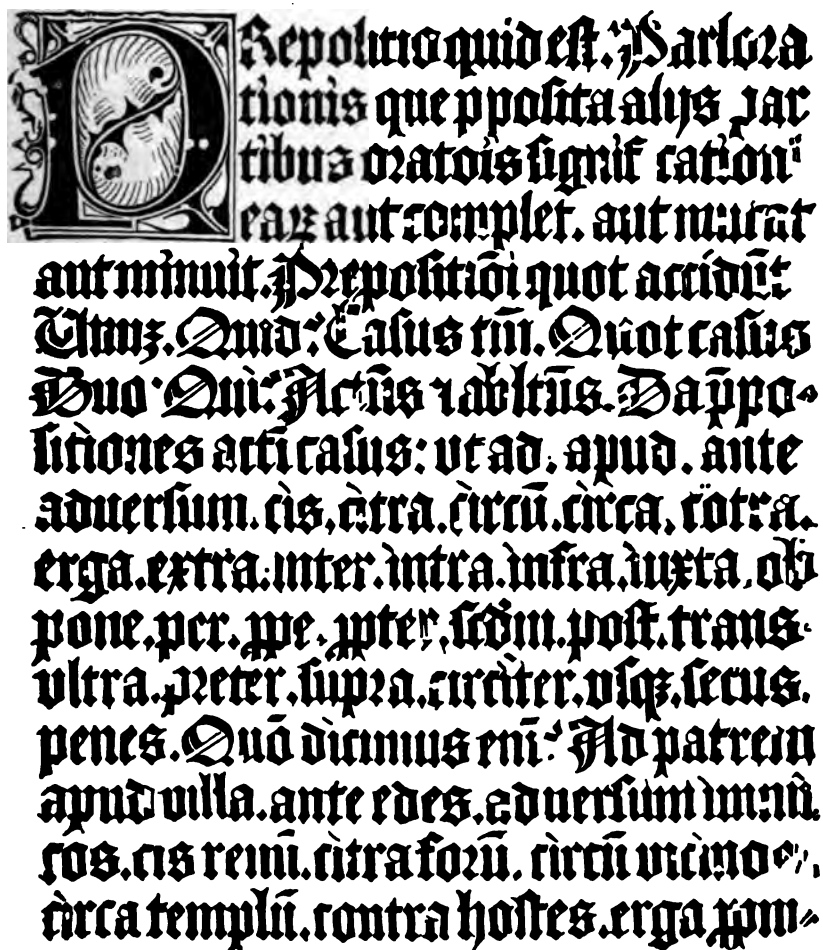 PRepositio quid est? Pars ora
tionis que p̱posita alijs par
tibus oratōis significationē
eaꝝ aut complet. aut mutat
aut minuit. Prepositiōi quot accidūt
Unuꝫ. Quid? Casus tm̄. Quot casus
Duo. Qui? Actūs ⁊ abltūs. Da p̄po-
sitiones acti casus: vt ad. apud. ante
aduersum. cis. citra. circū. circa. cōtra.
erga. extra. inter. intra. infra. iuxta. ob
pone. per. ꝓpe. ꝓpter. scdm̄. post. trans.
vltra. preter. supra. circiter. vsqꝫ. secus.
penes. Quō dicimus eni̅? Ad patrem
apud villā. ante edes. aduersum inimi
cos. cis renū. citra forū. circū vicinos.
circa templū. contra hostes. erga ꝓpin-